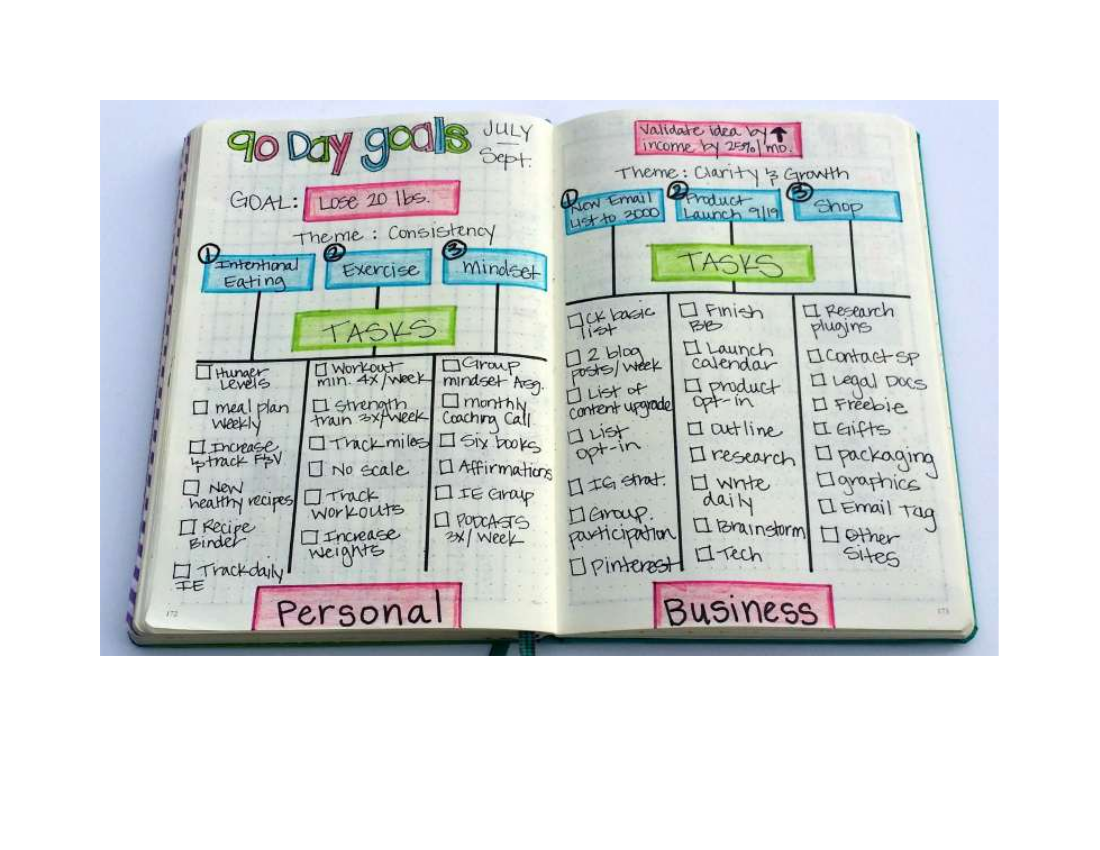 90 Day goals
JULY
—
Sept.
GOAL: Lose 20 lbs.
Theme: Consistency
1
Intentional
Eating
2
Exercise
3
Mindset
TASKS
Hunger
Levels
meal plan
Weekly
Increase
& track F&V
New
healthy recipes
Recipe
Binder
Track daily
IE
Workout
min. 4x/week
Strength
train 3x/week
Track miles
No scale
Track
Workouts
Increase
Weights
Group
mindset Asg.
monthly
Coaching Call
Six books
Affirmations
IE Group
PODCASTS
3x/week
Personal
172
Validate idea by ↑
income by 25%/mo.
Theme: Clarity & Growth
1
New Email
List to 3000
2
Product
Launch 9/19
3
Shop
TASKS
CK basic
list
2 blog
posts/week
List of
content upgrade
List
opt-in
IG strat.
Group
participation
Pinterest
Finish
BB
Launch
calendar
product
opt-in
outline
research
write
daily
Brainstorm
Tech
Research
plugins
Contact SP
Legal Docs
Freebie
Gifts
packaging
graphics
Email Tag
Other
Sites
Business
173